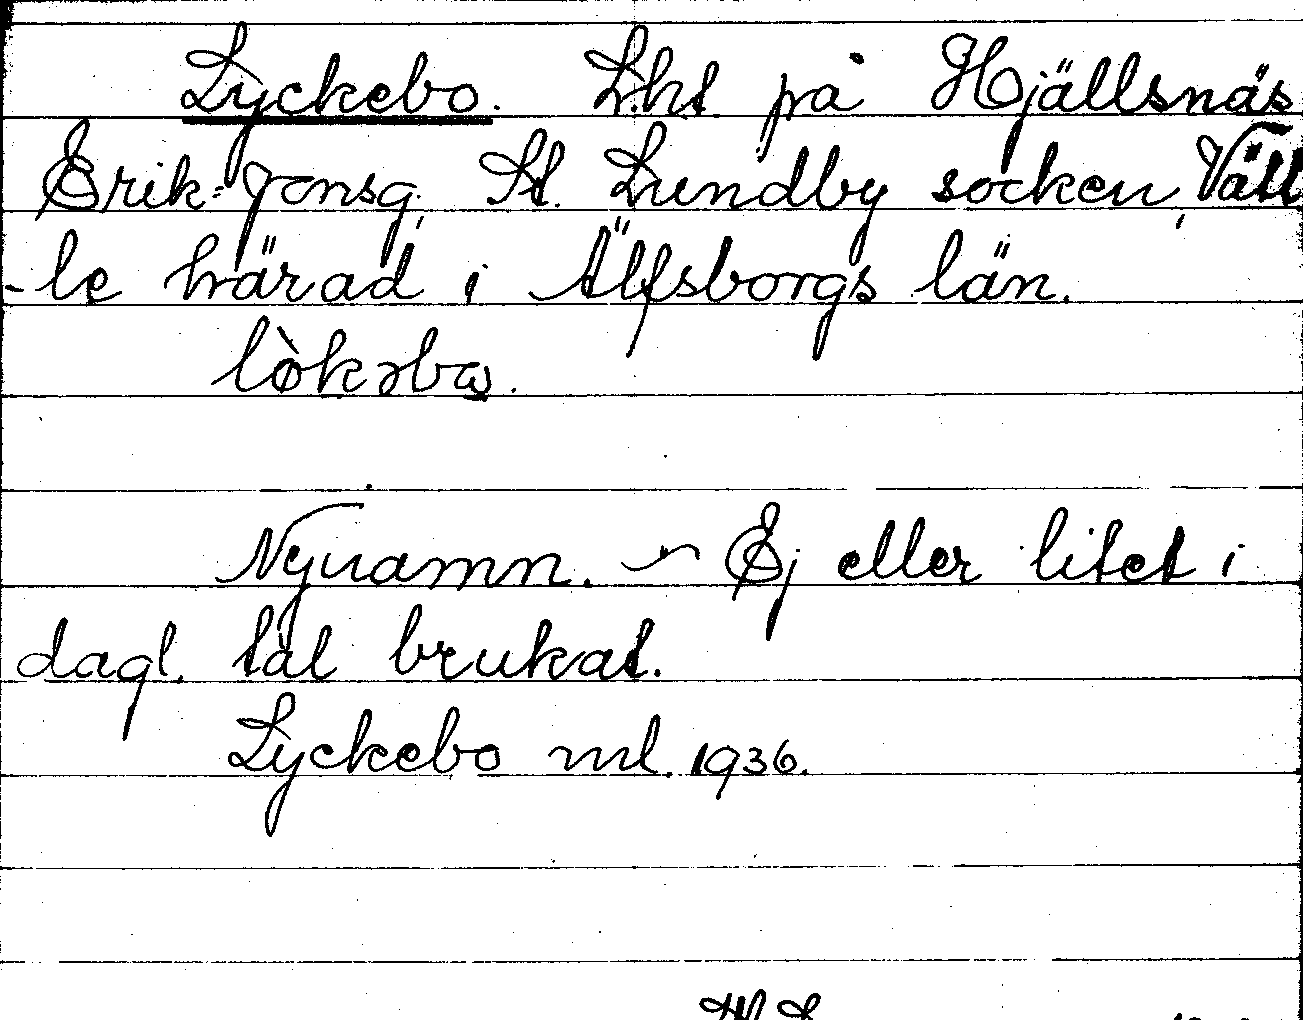 Lyckebo. Lht på Hjällsnäs
Erik-Jonsg. St. Lundby socken, Vätt
-le härad i Älfsborgs län.
lòkəbɷ.
Nynamn. ~ Ej eller litet i
dagl. tal brukat.
Lyckebo ml. 1936.